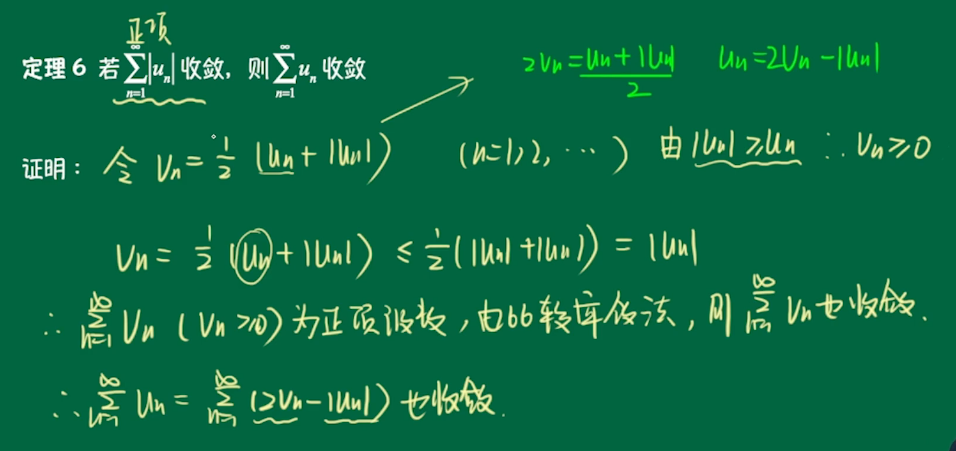 正项
定理 6 若 $\sum_{n=1}^{\infty}|u_n|$ 收敛，则 $\sum_{n=1}^{\infty}u_n$ 收敛
$2V_n=\frac{U_n+|U_n|}{2}$ $U_n=2V_n-|U_n|$
证明： 令 $V_n=\frac{1}{2}(U_n+|U_n|)$ $(n=1,2,\cdots)$ 由 $|U_n|\geq U_n$ ∴ $V_n\geq 0$
$V_n=\frac{1}{2}(U_n+|U_n|)\leq\frac{1}{2}(|U_n|+|U_n|)=|U_n|$
∴ $\sum_{n=1}^{\infty}V_n$ ($V_n\geq 0$) 为正项级数，由比较审敛法，则 $\sum_{n=1}^{\infty}V_n$ 也收敛.
∴ $\sum_{n=1}^{\infty}U_n=\sum_{n=1}^{\infty}(2V_n-|U_n|)$ 也收敛.